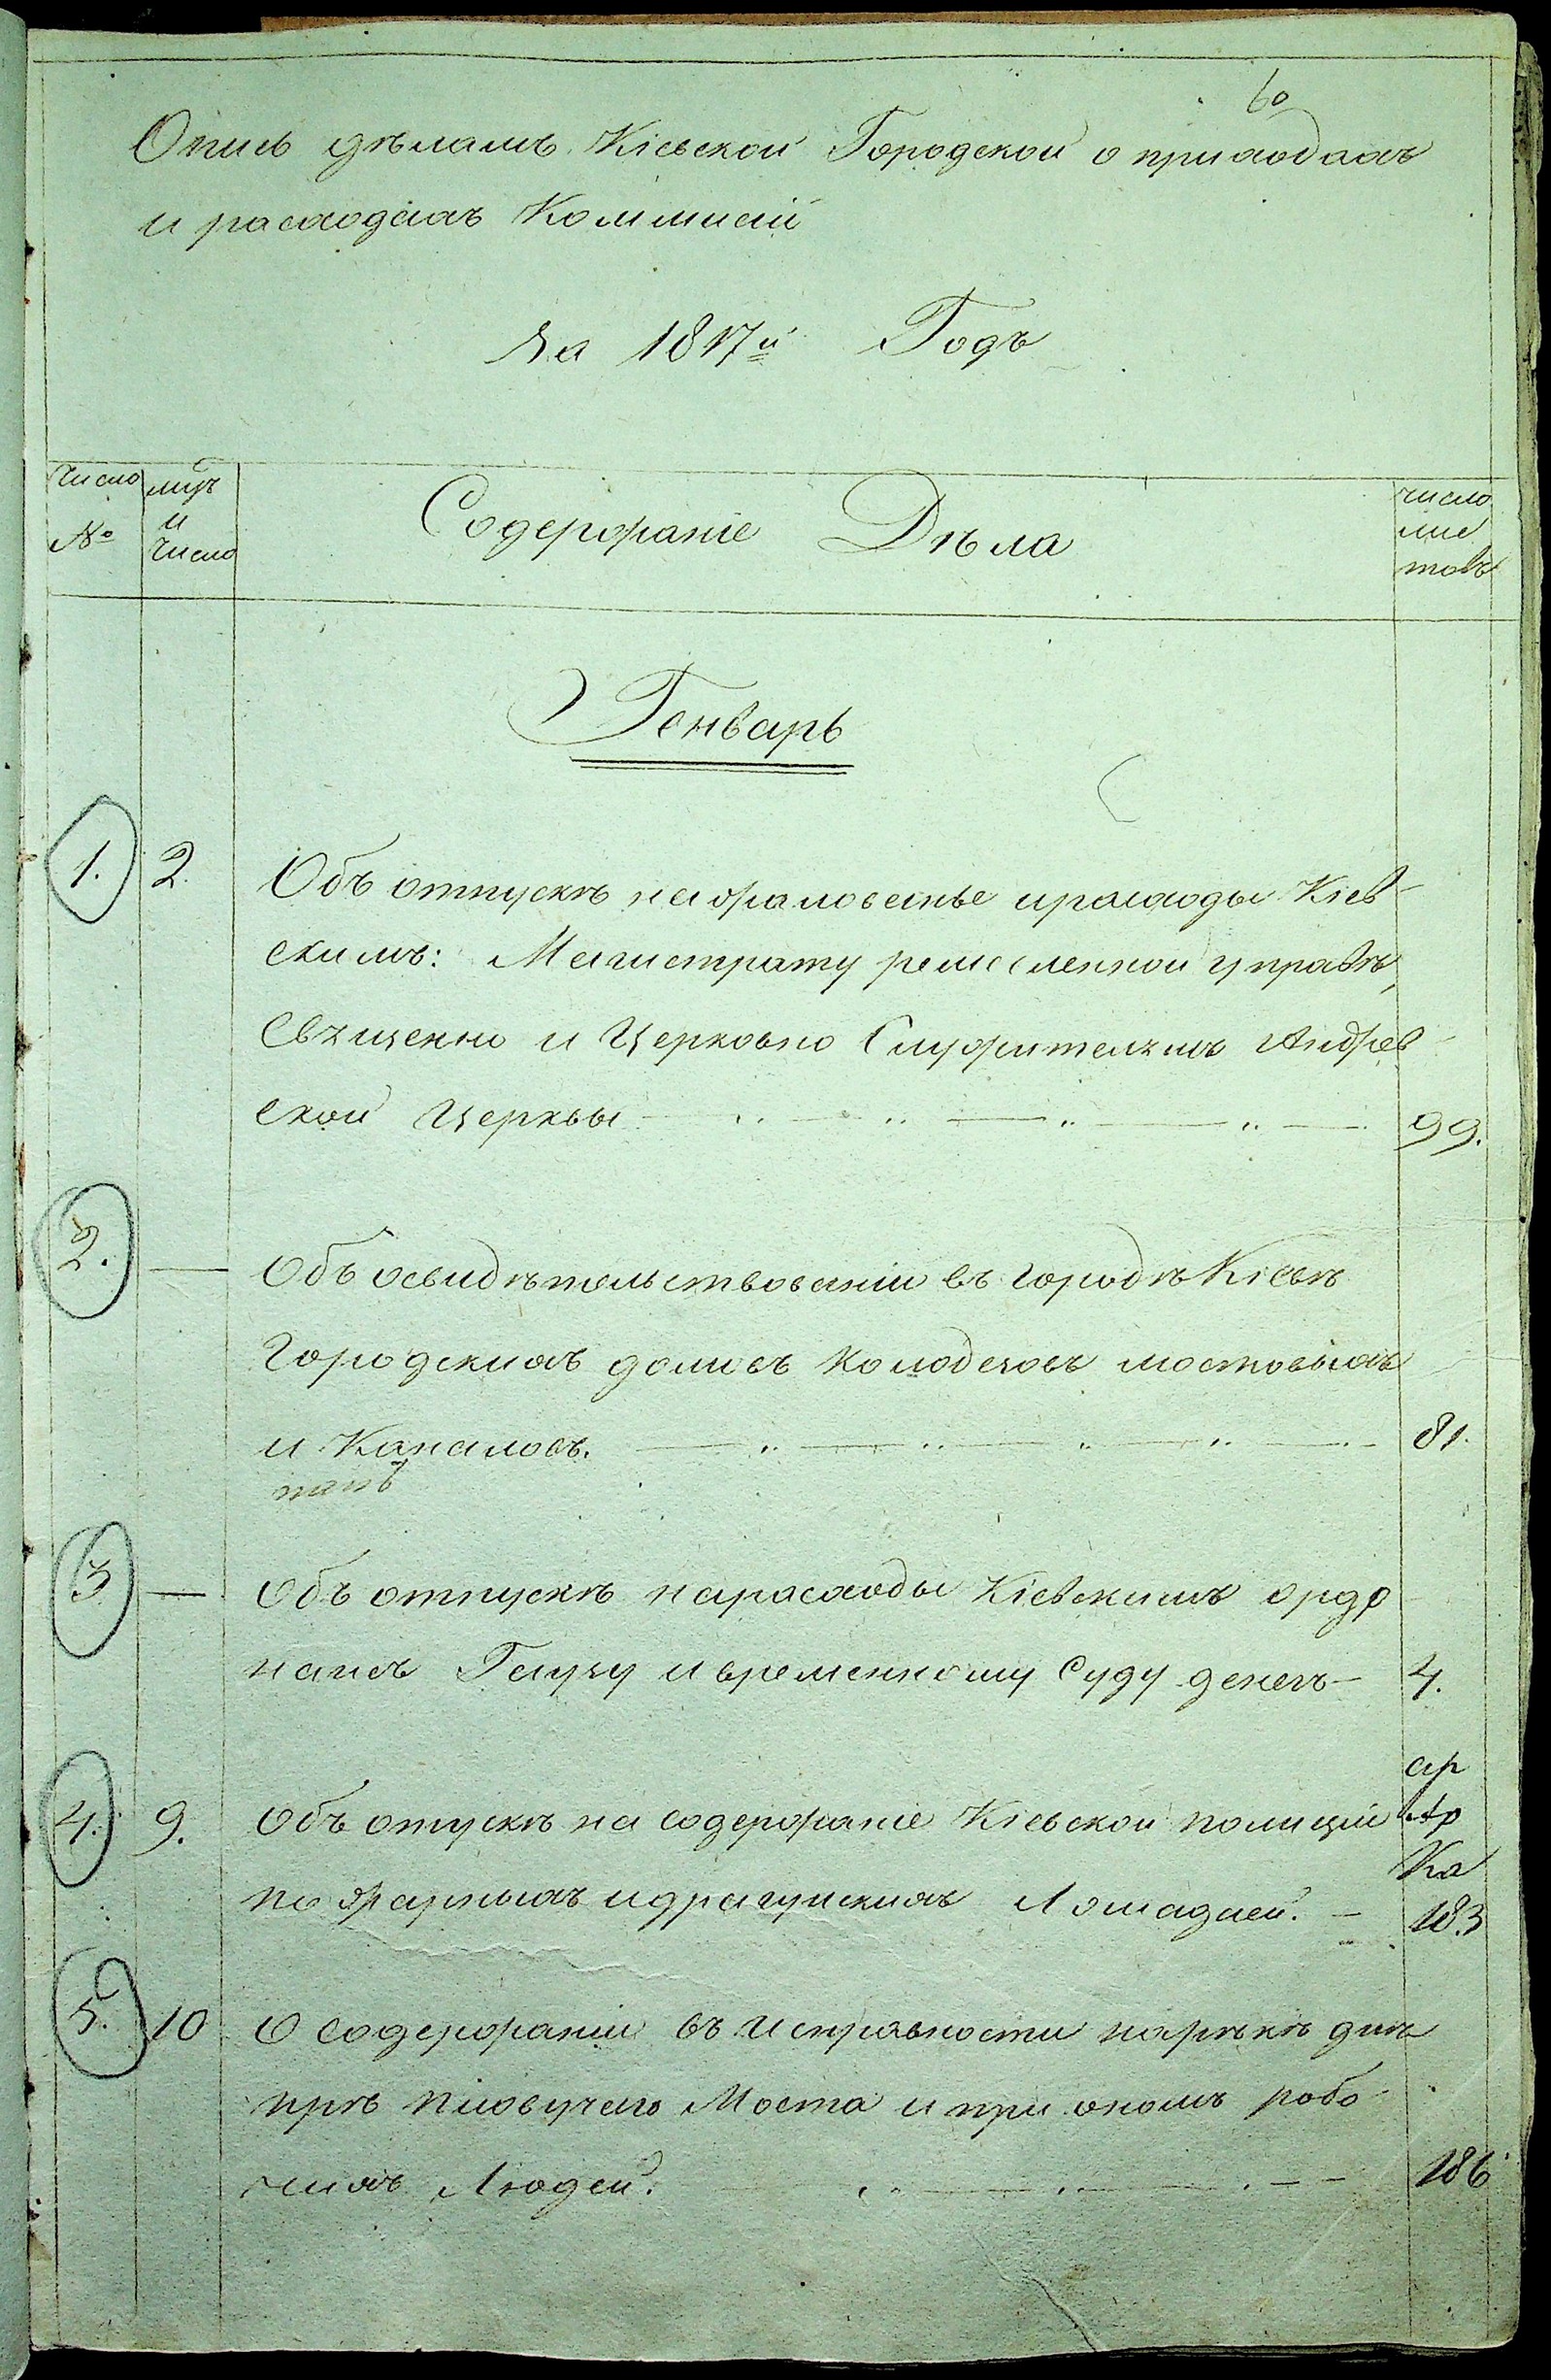 60
Опись дѣламъ Кіевской Городской о приходахъ
и расходахъ Коммисіи
За 1817й Годъ
Число
№
мцъ
и
Число
Содержаніе Дѣла
число
лис
товъ
Генварь
1. 2. Объ отпускѣ на жалованье и расходы Кіев
скимъ: Магистрату ремесленной управѣ,
Священно и Церковно Служителямъ Андреев
ской Церквы 99.
2. — Объ освидѣтельствованіи въ городѣ Кіевѣ
Городскихъ домовъ колодезовъ мостовыхъ
и Каналовъ. 81.
3 — Объ отпускѣ на расходы Кіевскимъ ордо
нансъ Гаузу и временному Суду денегъ — 4.
4. 9. Объ отпускѣ на содержаніе Кіевской полиціи
пожарныхъ и драгунскихъ Лошадей. — 183
5. 10 О содержаніи въ исправности на рѣкѣ дне
прѣ пловучего Моста и при ономъ рабо
чихъ Людей. 186